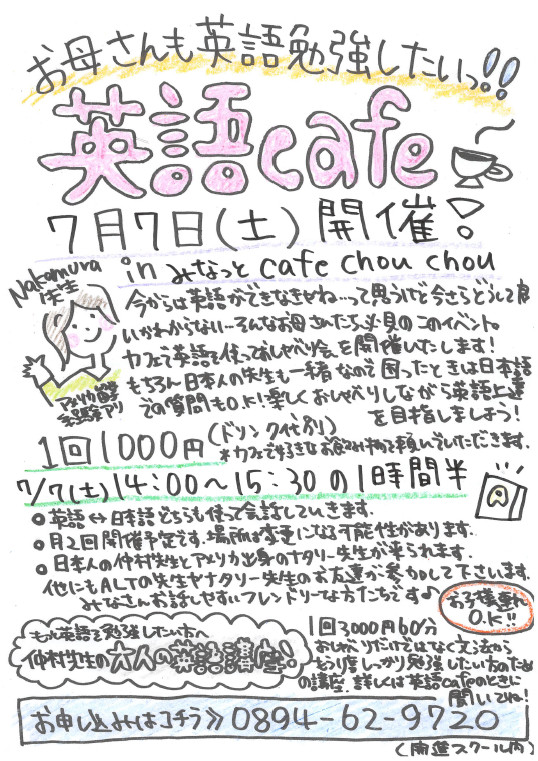 お母さんも英語勉強したいっ!!
英語cafe
7月7日(土)開催!
in みなっと cafe chou chou
Nakamura先生
今からは英語ができなきゃね…って思うけど今さらどうして良
いかわからない…そんなお母さんたち必見のこのイベント。
カフェで英語を使っておしゃべり会を開催いたします!
もちろん日本人の先生も一緒なので困ったときは日本語
での質問もO.K!楽しくおしゃべりしながら英語上達
を目指しましょう!
アメリカ留学
実経験アリ
1回1000円(ドリンク代別)
*カフェで好きなお飲み物を頼んでいただきます.
7/7(土)14:00〜15:30の1時間半
英語↔日本語どちらも使って会話していきます.
月2回開催予定です.場所は変更になる可能性があります.
日本人の仲村先生とアメリカ出身のナタリー先生が来られます.
他にもALTの先生やナタリー先生のお友達が参加して下さいます.
みなさんお話しやすいフレンドリーな方たちです♪
お子様連れ
O.K!!
もっと英語を勉強したい方へ
仲村先生の大人の英語講座!
1回3000円60分
おしゃべりだけではなく文法から
もう1度しっかり勉強したい方のため
の講座.詳しくは英語cafeのときに
聞いてね!
お申し込みはコチラ≫0894-62-9720
(開進スクール内)